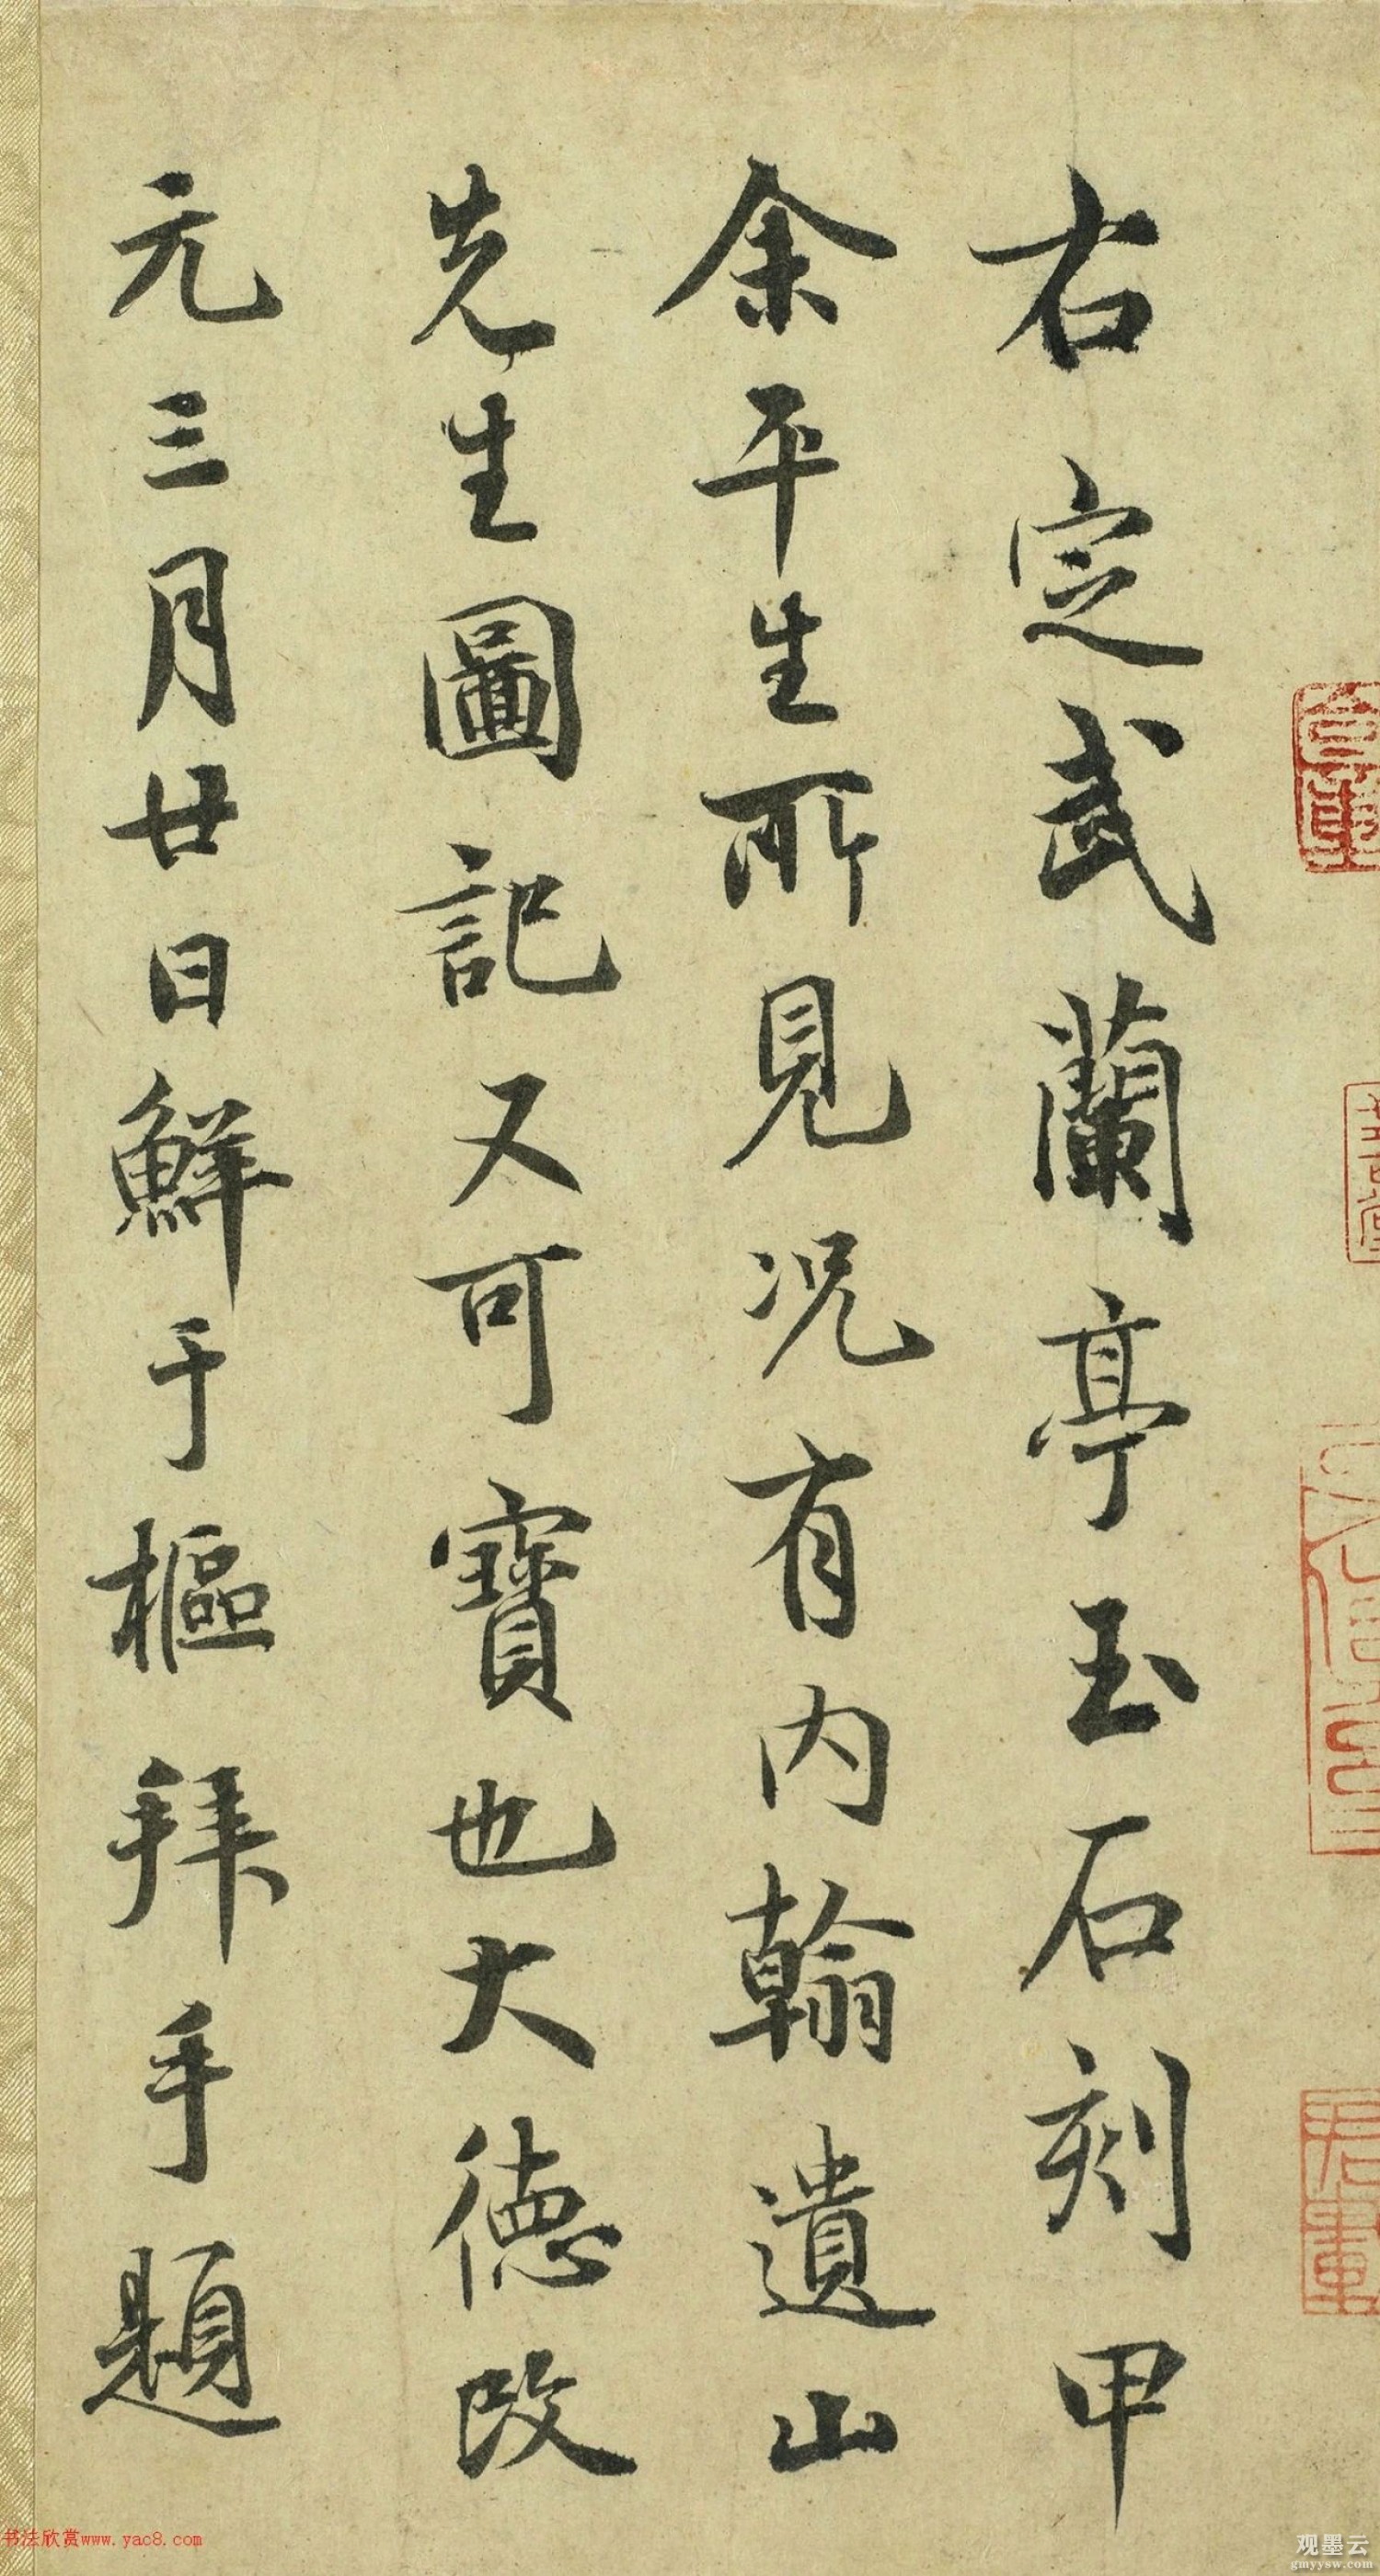 右定武蘭亭玉石刻甲
余平生所見况有内翰遺山
先生圖記又可寶也大德改
元三月廿日鮮于樞拜手題
书法欣赏www.yac8.com
观墨云
gmyysw.com